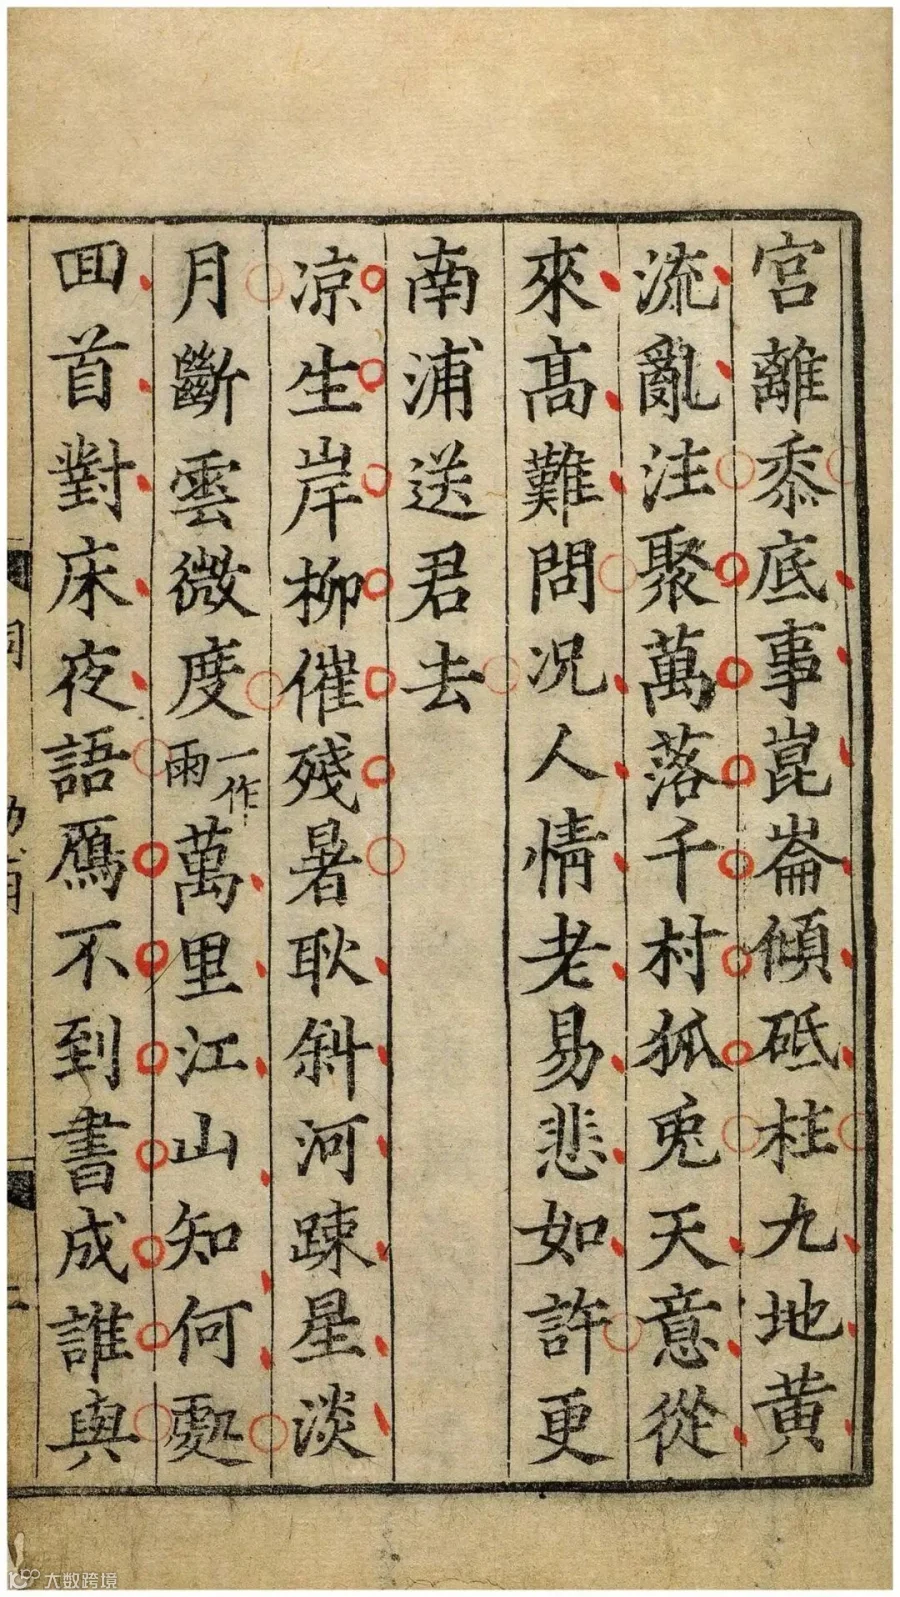 宮離黍底事崑崙傾砥柱九地黄
流亂注聚萬落千村狐兎天意從
來高難問况人情老易悲如許更
南浦送君去
凉生岸柳催殘暑耿斜河踈星淡
月斷雲微度一作雨萬里江山知何處
回首對床夜語鴈不到書成誰與
大數跨境